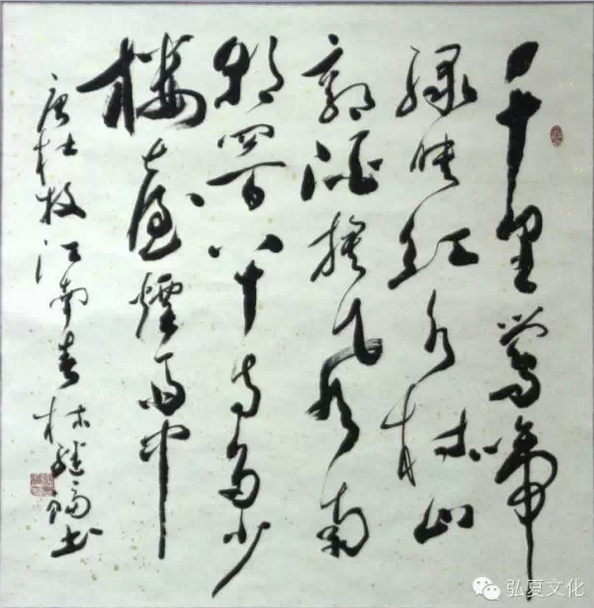 千里鶯啼
绿映红水村山
郭酒旗风南
朝四百八十寺多少
楼臺煙雨中
唐杜牧江南春 林 书
弘夏文化